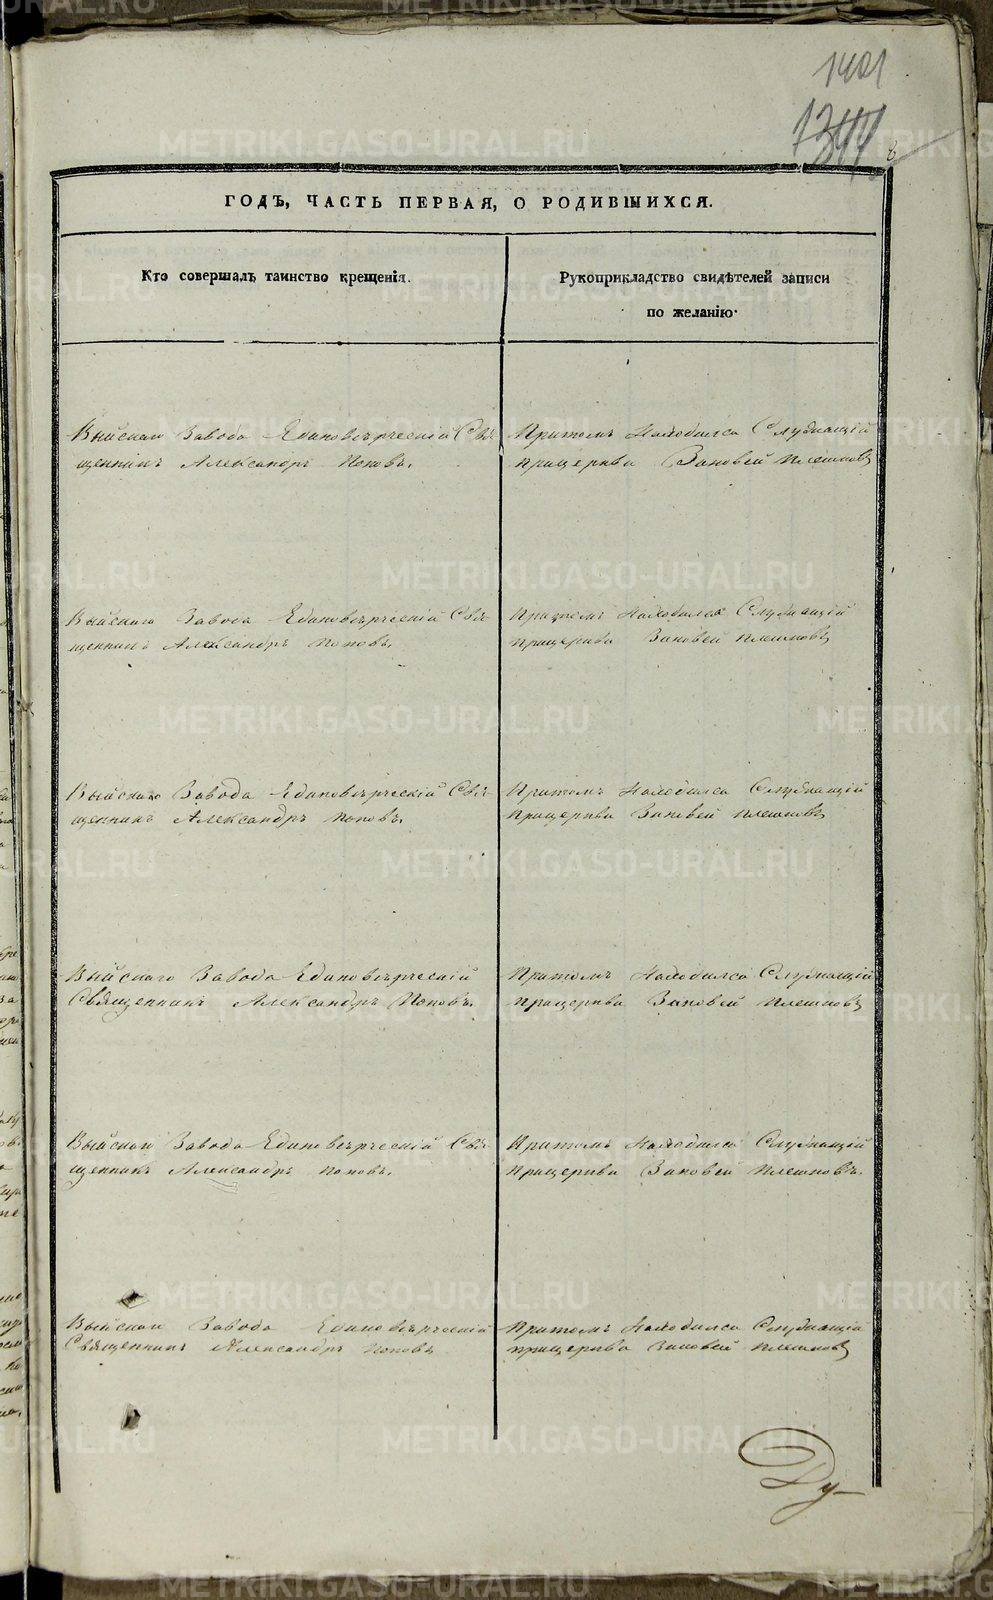 1401
1344
ГОДЪ, ЧАСТЬ ПЕРВАЯ, О РОДИВШИХСЯ.
Кто совершалъ таинство крещенія.
Рукоприкладство свидѣтелей записи
по желанію.
Выйскаго Завода Единовѣрческій Свя
щенникъ Александръ Поповъ.
Притомъ Находился Служащій
прицерькви Зиновей Плешковъ
Выйскаго Завода Единовѣрческій Свя
щенникъ Александръ Поповъ.
Притомъ Находился Служащій
прицерькви Зиновей Плешковъ
Выйскаго Завода Единовѣрческій Свя
щенникъ Александръ Поповъ.
Притомъ Находился Служащій
прицерькви Зиновей Плешковъ
Выйскаго Завода Единовѣрческій
Священникъ Александръ Поповъ.
Притомъ Находился Служащій
прицерькви Зиновей Плешковъ
Выйскаго Завода Единовѣрческій Свя
щенникъ Александръ Поповъ.
Притомъ Находился Служащій
прицерькви Зиновей Плешковъ.
Выйскаго Завода Единовѣрческій
Священникъ Александръ Поповъ
Притомъ Находился Служащій
прицерькви Зиновей Плешковъ
Ду-
METRIKI.GASO-URAL.RU